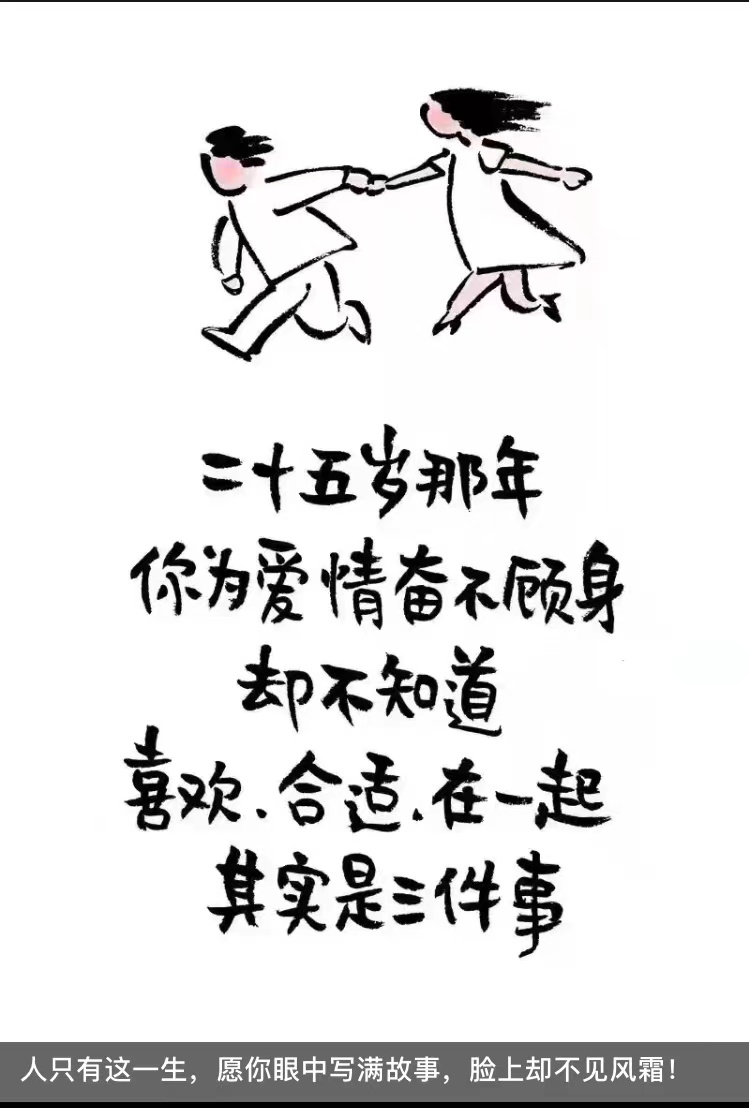 二十五岁那年
你为爱情奋不顾身
却不知道
喜欢、合适、在一起
其实是三件事
人只有这一生，愿你眼中写满故事，脸上却不见风霜！